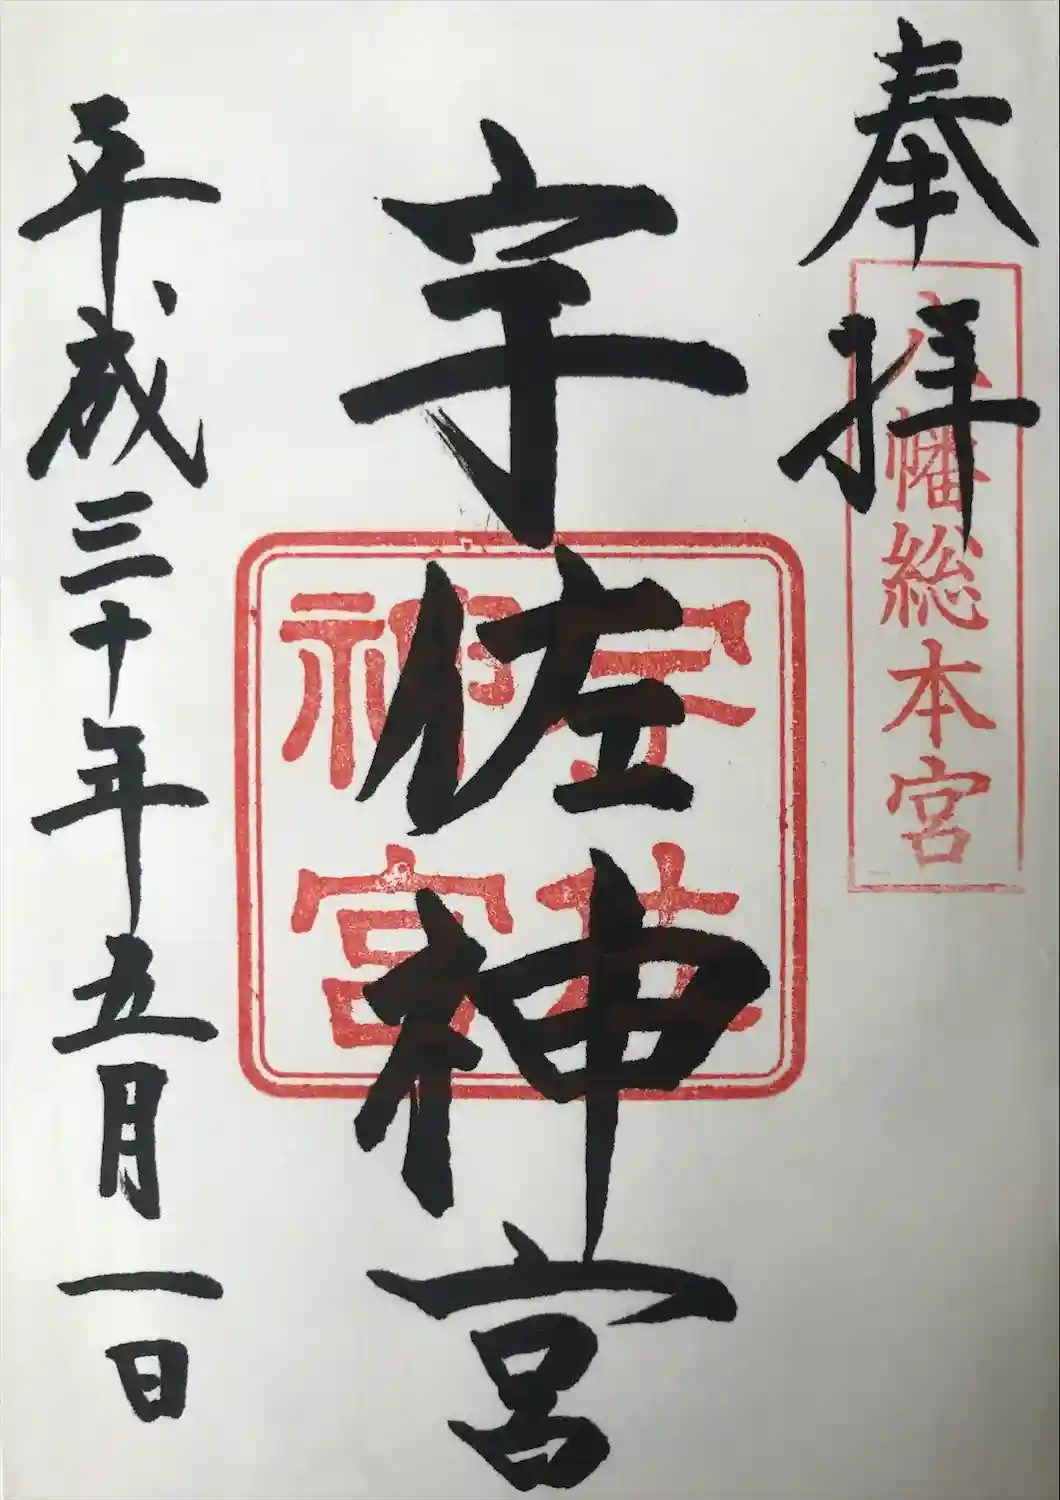 奉拝
八幡総本宮
宇佐神宮
宇佐
神宮
平成三十年五月一日